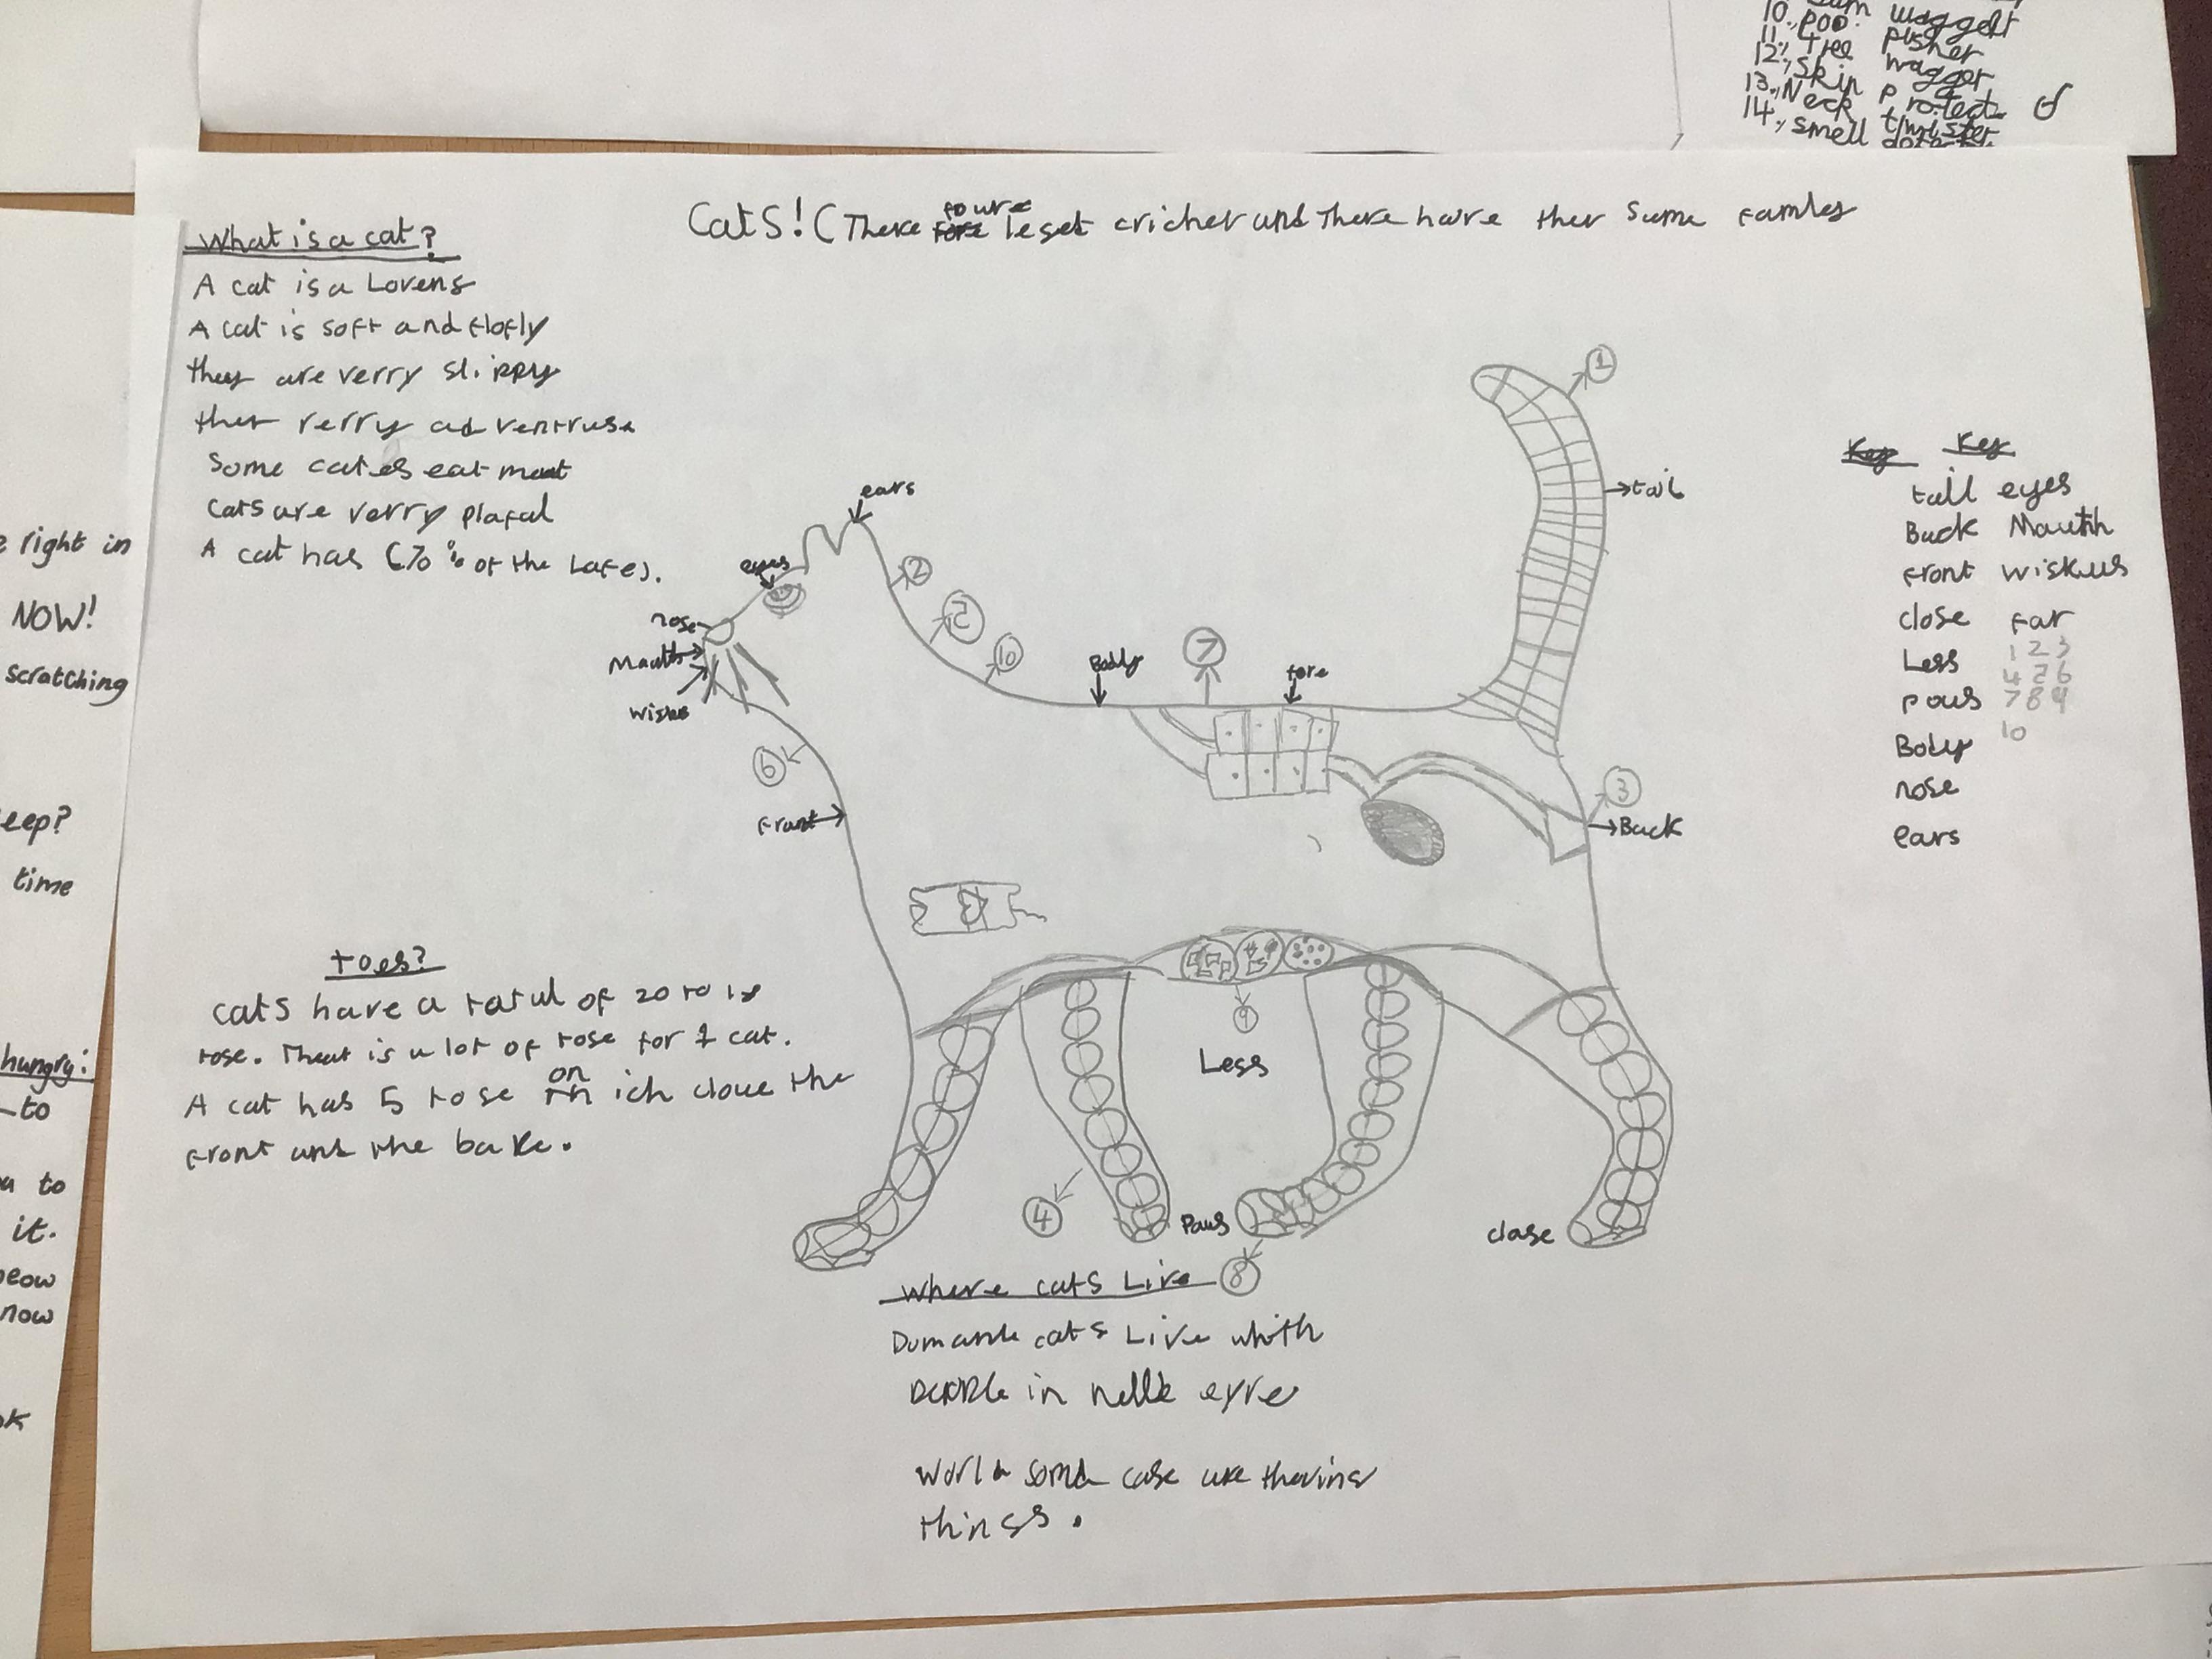 10., poo waggelt
11., Tree pusher
12., Skin wagger
13., Neck protect
14., smell twister
Cats! (There foure leset cricher and There have ther Same Famley
What is a cat?
A cat is a Lovens
A cat is soft and flofly
they are verry slippy
ther verry adventruse
Some cates eat meat
Cats are verry plafal
A cat has 670% of the Lafes.
ears
eyes
nose
Mauth
Wiskus
Front
Body
fore
tail
Back
1
2
2
10
7
6
3
9
4
8
Less
Paws
close
Key Key
tail eyes
Back Mauth
Front Wiskus
close Far
Less 1 2 3
4 2 6
paus 7 8 9
Body 10
nose
ears
toes?
Cats have a tatul of 20 to 18
tose. Theat is a lot of tose for 1 cat.
A cat has 5 tose on ich cloue the
Front and the bake.
Where cats Live
cats Live whith
in
World some case are
things.
e right in
NOW!
scratching
eep?
time
hungry:
to
to
it.
eow
now